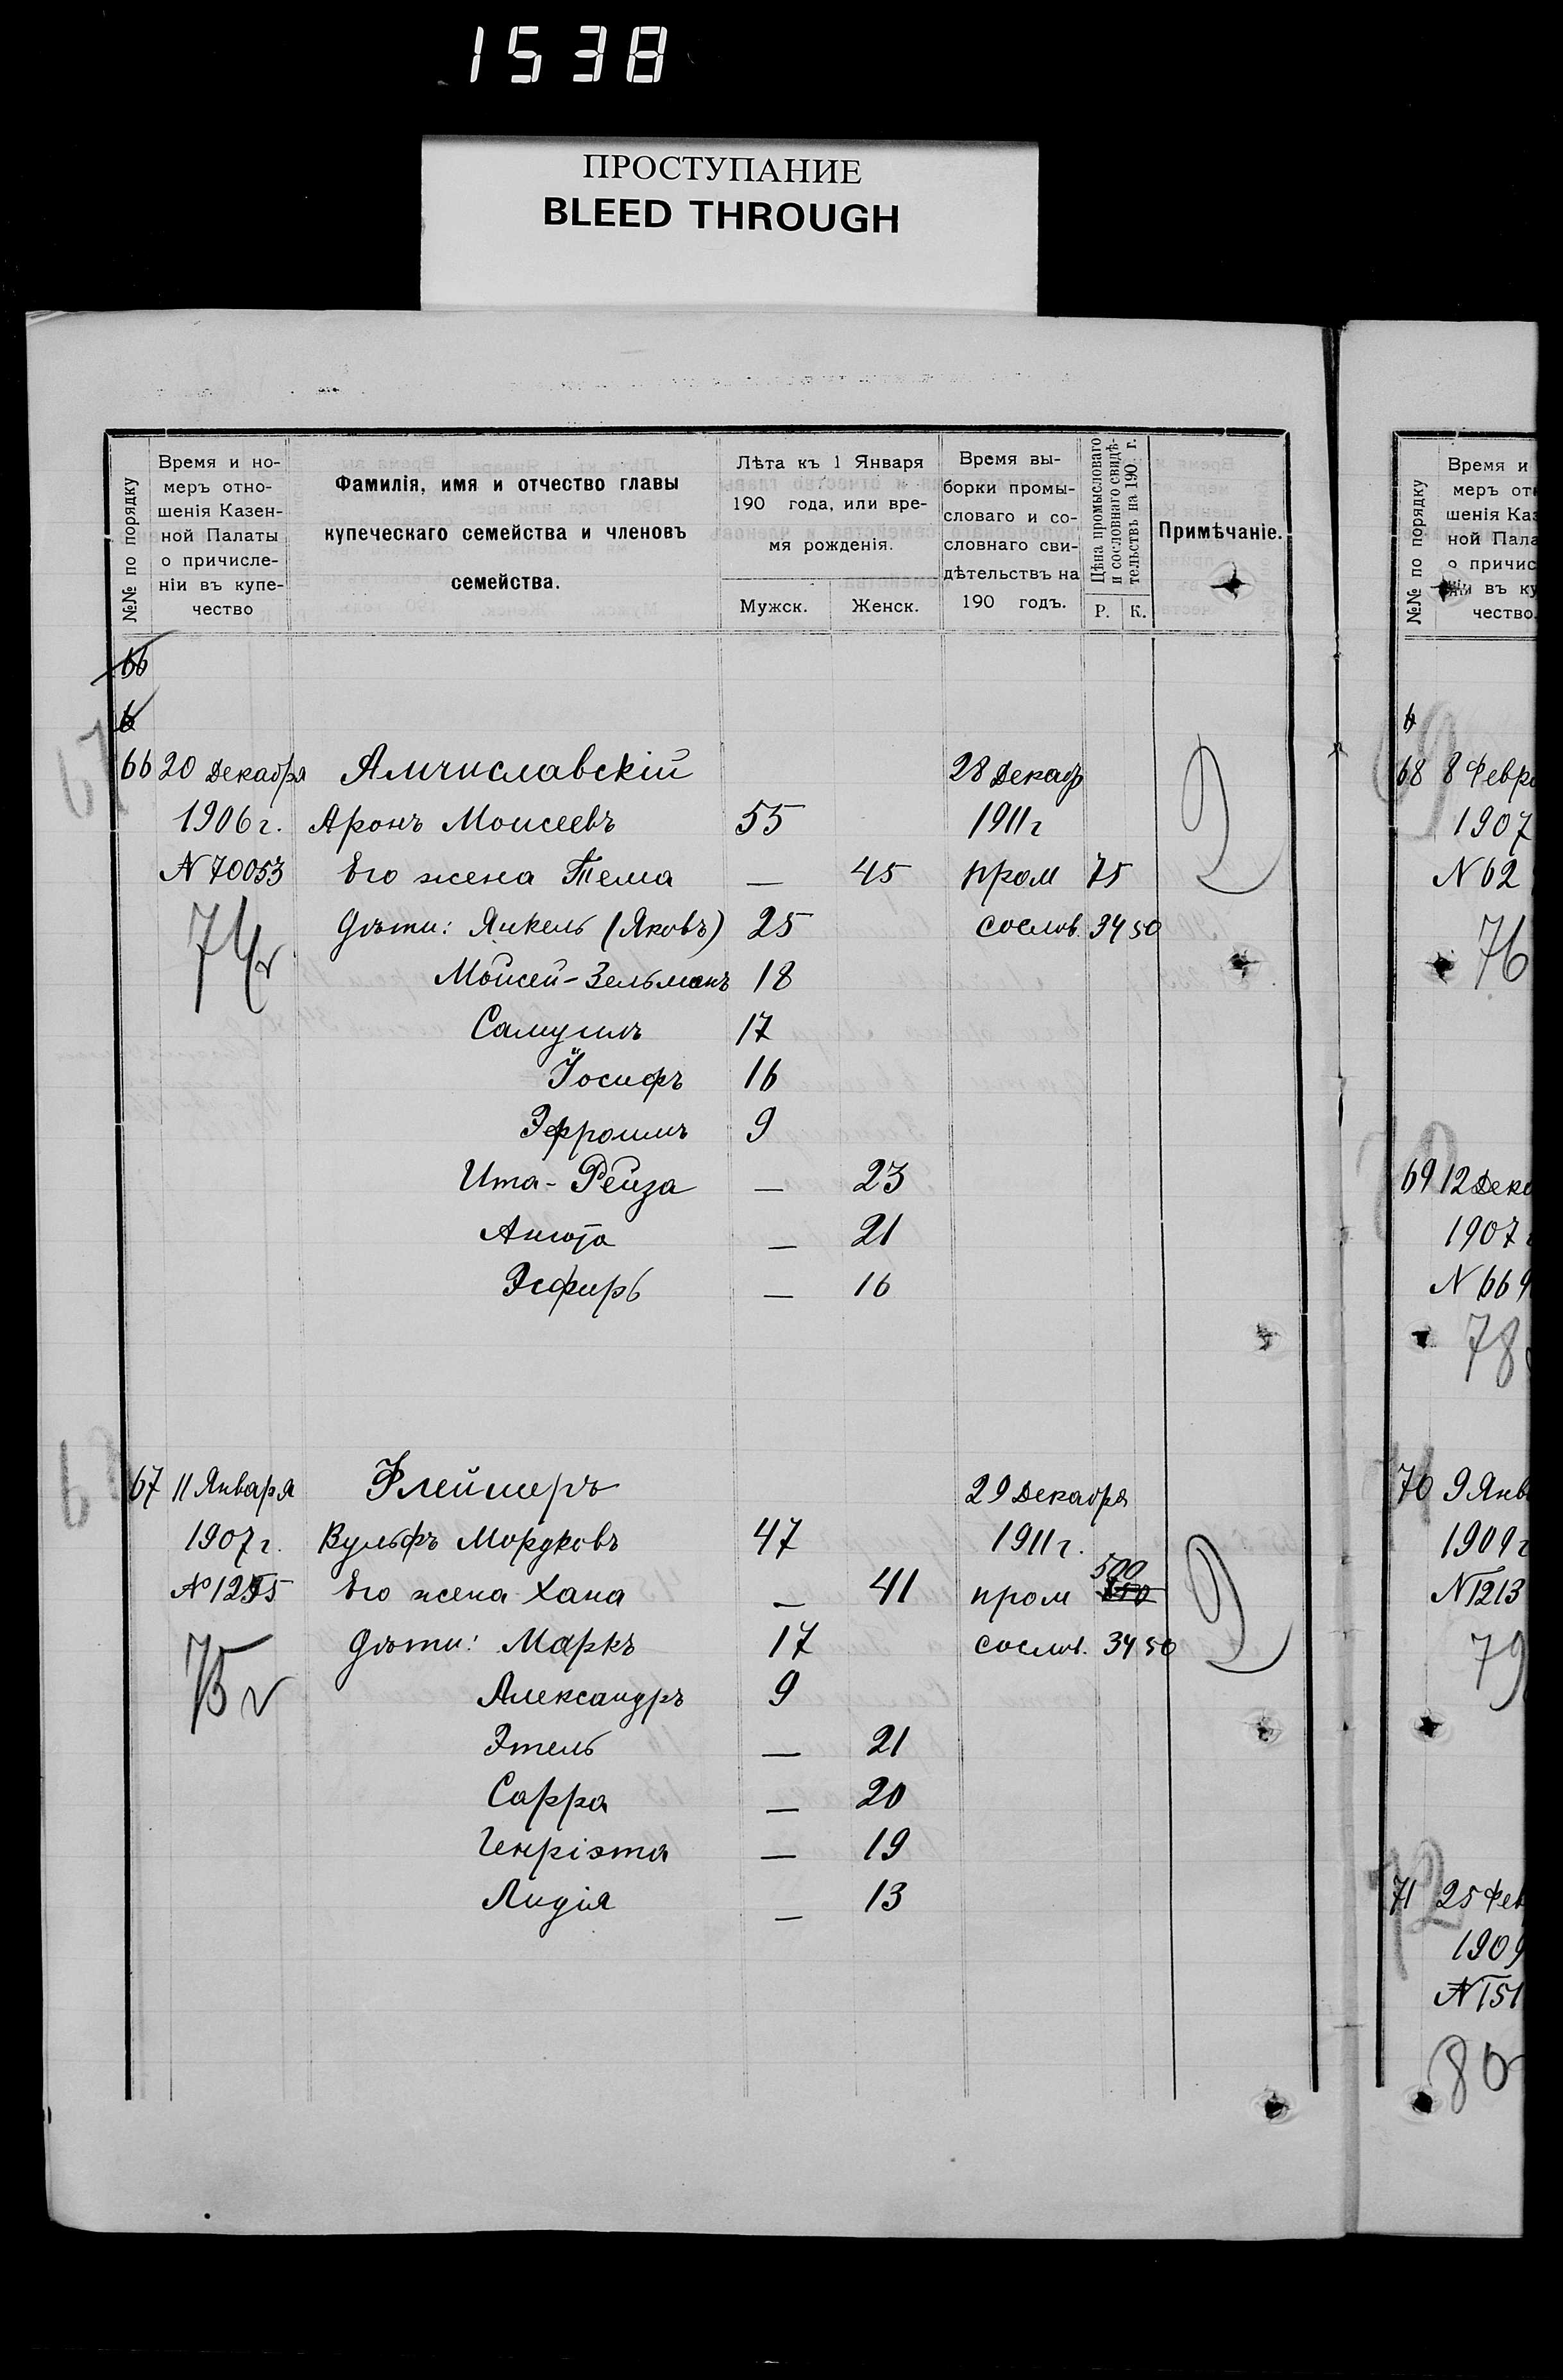 1538
ПРОСТУПАНИЕ
BLEED THROUGH
№№ по порядку
Время и но-
меръ отно-
шенія Казен-
ной Палаты
о причисле-
ніи въ купе-
чество
Фамилія, имя и отчество главы
купеческаго семейства и членовъ
семейства.
Лѣта къ 1 Января
190 года, или вре-
мя рожденія.
Мужск. Женск.
Время вы-
борки промы-
словаго и со-
словнаго сви-
дѣтельствъ на
190 годъ.
Цѣна промысловаго
и сословнаго свидѣ-
тельствъ на 190 г.
Р. К.
Примѣчаніе.
66
6
67
66 20 Декабря Амчиславскій 28 Декаб
1906 г. Аронъ Моисеевъ 55 1911 г
N 70053 Его жена Тема — 45 пром 75
74 v Дѣти: Янкель (Яковъ) 25 сослов. 34 50
Моисей-Зельманъ 18
Самуилъ 17
Іосифъ 16
Эфроимъ 9
Ита-Рейза — 23
Анюта — 21
Эсфирь — 16
68
67 11 Января Флейшеръ 29 Декабря
1907 г. Вульфъ Мордковъ 47 1911 г.
500
№ 1255 Его жена Хана — 41 пром
75 v Дѣти: Маркъ 17 сослов. 34 50
Александръ 9
Этель — 21
Сарра — 20
Генріэта — 19
Лидія — 13
№№ по порядку
Время и
меръ от
шенія Каз
ной Пала
о причис
ніи въ ку
чество.
6
69
68 8 Февра
1907
N 62
76
70
69 12 Дека
1907 г
N 669
78
71
70 9 Янв
1909 г
N 1213
79
72
71 25 Фев
1909
N 151
80